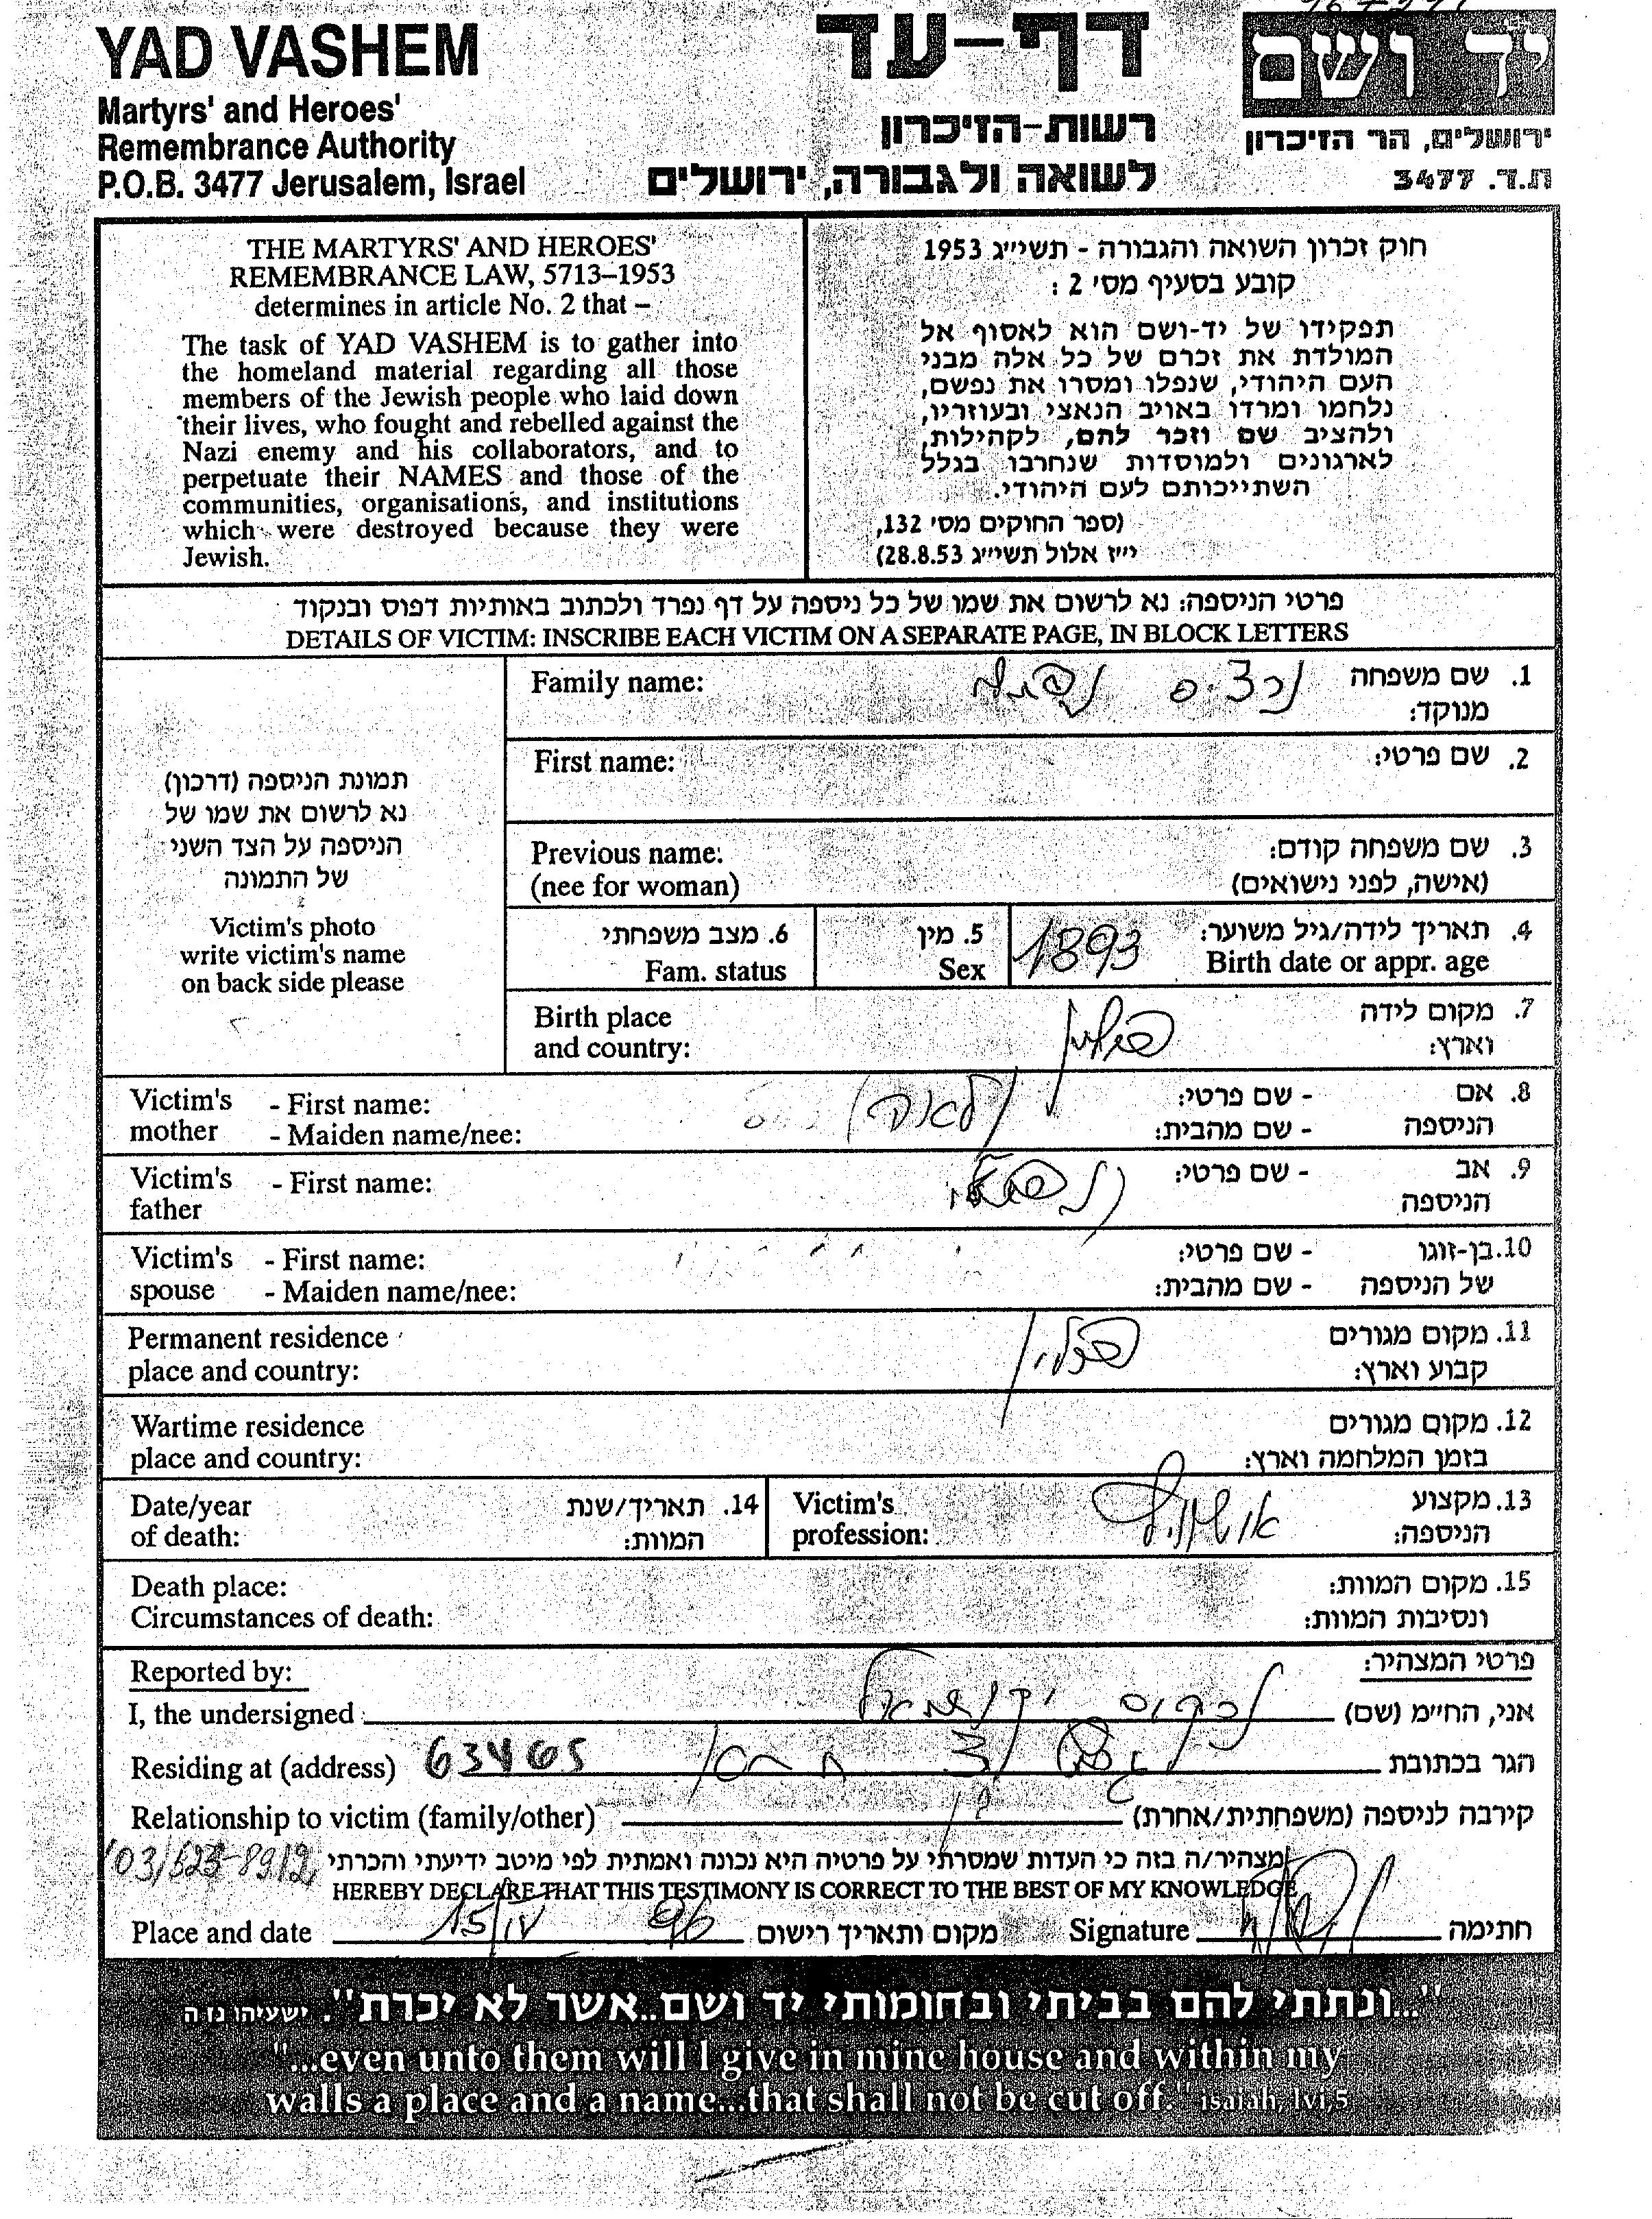 YAD VASHEM
Martyrs' and Heroes'
Remembrance Authority
P.O.B. 3477 Jerusalem, Israel
דף-עד
רשות-הזיכרון
לשואה ולגבורה, ירושלים
יד ושם
ירושלים, הר הזיכרון
ת.ד. 3477
THE MARTYRS' AND HEROES'
REMEMBRANCE LAW, 5713–1953
determines in article No. 2 that –
The task of YAD VASHEM is to gather into
the homeland material regarding all those
members of the Jewish people who laid down
their lives, who fought and rebelled against the
Nazi enemy and his collaborators, and to
perpetuate their NAMES and those of the
communities, organisations, and institutions
which were destroyed because they were
Jewish.
חוק זכרון השואה והגבורה - תשי״ג 1953
קובע בסעיף מס׳ 2 :
תפקידו של יד-ושם הוא לאסוף אל
המולדת את זכרם של כל אלה מבני
העם היהודי, שנפלו ומסרו את נפשם,
נלחמו ומרדו באויב הנאצי ובעוזריו,
ולהציב שם וזכר להם, לקהילות,
לארגונים ולמוסדות שנחרבו בגלל
השתייכותם לעם היהודי.
(ספר החוקים מס׳ 132,
י״ז אלול תשי״ג 28.8.53)
פרטי הניספה: נא לרשום את שמו של כל ניספה על דף נפרד ולכתוב באותיות דפוס ובנקוד
DETAILS OF VICTIM: INSCRIBE EACH VICTIM ON A SEPARATE PAGE, IN BLOCK LETTERS
תמונת הניספה (דרכון)
נא לרשום את שמו של
הניספה על הצד השני
של התמונה
Victim's photo
write victim's name
on back side please
Family name:
1. שם משפחה
מנוקד:
First name:
2. שם פרטי:
Previous name:
(nee for woman)
3. שם משפחה קודם:
(אישה, לפני נישואים)
4. תאריך לידה/גיל משוער: 1893
Birth date or appr. age
5. מין
Sex
6. מצב משפחתי
Fam. status
Birth place
and country:
7. מקום לידה
וארץ:
פולין
Victim's - First name:
mother - Maiden name/nee:
8. אם - שם פרטי: לאה
הניספה - שם מהבית:
Victim's - First name:
father
9. אב - שם פרטי:
הניספה
Victim's - First name:
spouse - Maiden name/nee:
10. בן-זוגו - שם פרטי:
של הניספה - שם מהבית:
Permanent residence
place and country:
11. מקום מגורים
קבוע וארץ:
פולין
Wartime residence
place and country:
12. מקום מגורים
בזמן המלחמה וארץ:
Date/year
of death:
14. תאריך/שנת
המוות:
Victim's
profession:
13. מקצוע
הניספה:
Death place:
Circumstances of death:
15. מקום המוות:
ונסיבות המוות:
Reported by:
פרטי המצהיר:
I, the undersigned
אני, הח״מ (שם)
Residing at (address) 63465
הגר בכתובת
Relationship to victim (family/other)
קירבה לניספה (משפחתית/אחרת)
מצהיר/ה בזה כי העדות שמסרתי על פרטיה היא נכונה ואמתית לפי מיטב ידיעתי והכרתי
HEREBY DECLARE THAT THIS TESTIMONY IS CORRECT TO THE BEST OF MY KNOWLEDGE
Place and date 15/IV 96 מקום ותאריך רישום
Signature
חתימה
"...ונתתי להם בביתי ובחומותי יד ושם..אשר לא יכרת". ישעיהו נו ה
"...even unto them will I give in mine house and within my
walls a place and a name...that shall not be cut off." isaiah, lvi,5